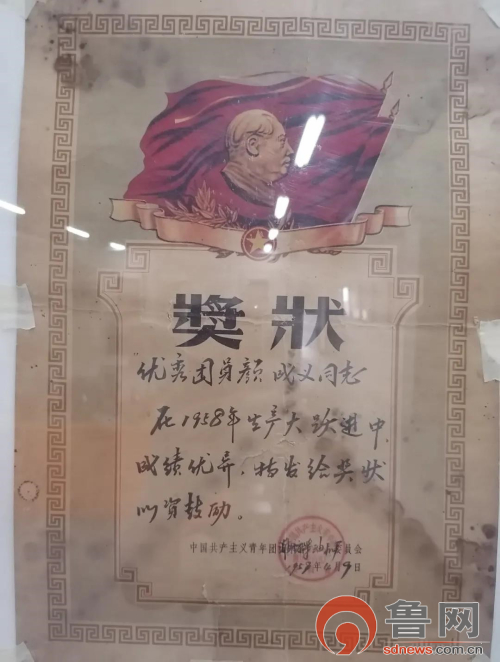 獎狀
优秀团员颜成义同志
在1958年生产大跃进中
成绩优异，特发给奖状
以资鼓励。
中国共产主义青年团 委员会
鲁网
sdnews.com.cn